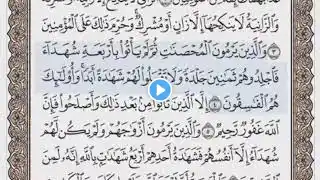 وَالزَّانِيَةُ لَا يَنكِحُهَا إِلَّا زَانٍ أَوْ مُشْرِكٌ وَحُرِّمَ ذَٰلِكَ عَلَى الْمُؤْمِنِينَ
٣ وَالَّذِينَ يَرْمُونَ الْمُحْصَنَاتِ ثُمَّ لَمْ يَأْتُوا بِأَرْبَعَةِ شُهَدَاءَ
فَاجْلِدُوهُمْ ثَمَانِينَ جَلْدَةً وَلَا تَقْبَلُوا لَهُمْ شَهَادَةً أَبَدًا وَأُولَٰئِكَ
هُمُ الْفَاسِقُونَ ٤ إِلَّا الَّذِينَ تَابُوا مِن بَعْدِ ذَٰلِكَ وَأَصْلَحُوا فَإِنَّ
اللَّهَ غَفُورٌ رَّحِيمٌ ٥ وَالَّذِينَ يَرْمُونَ أَزْوَاجَهُمْ وَلَمْ يَكُن لَّهُمْ
شُهَدَاءُ إِلَّا أَنفُسُهُمْ فَشَهَادَةُ أَحَدِهِمْ أَرْبَعُ شَهَادَاتٍ بِاللَّهِ إِنَّهُ لَمِنَ